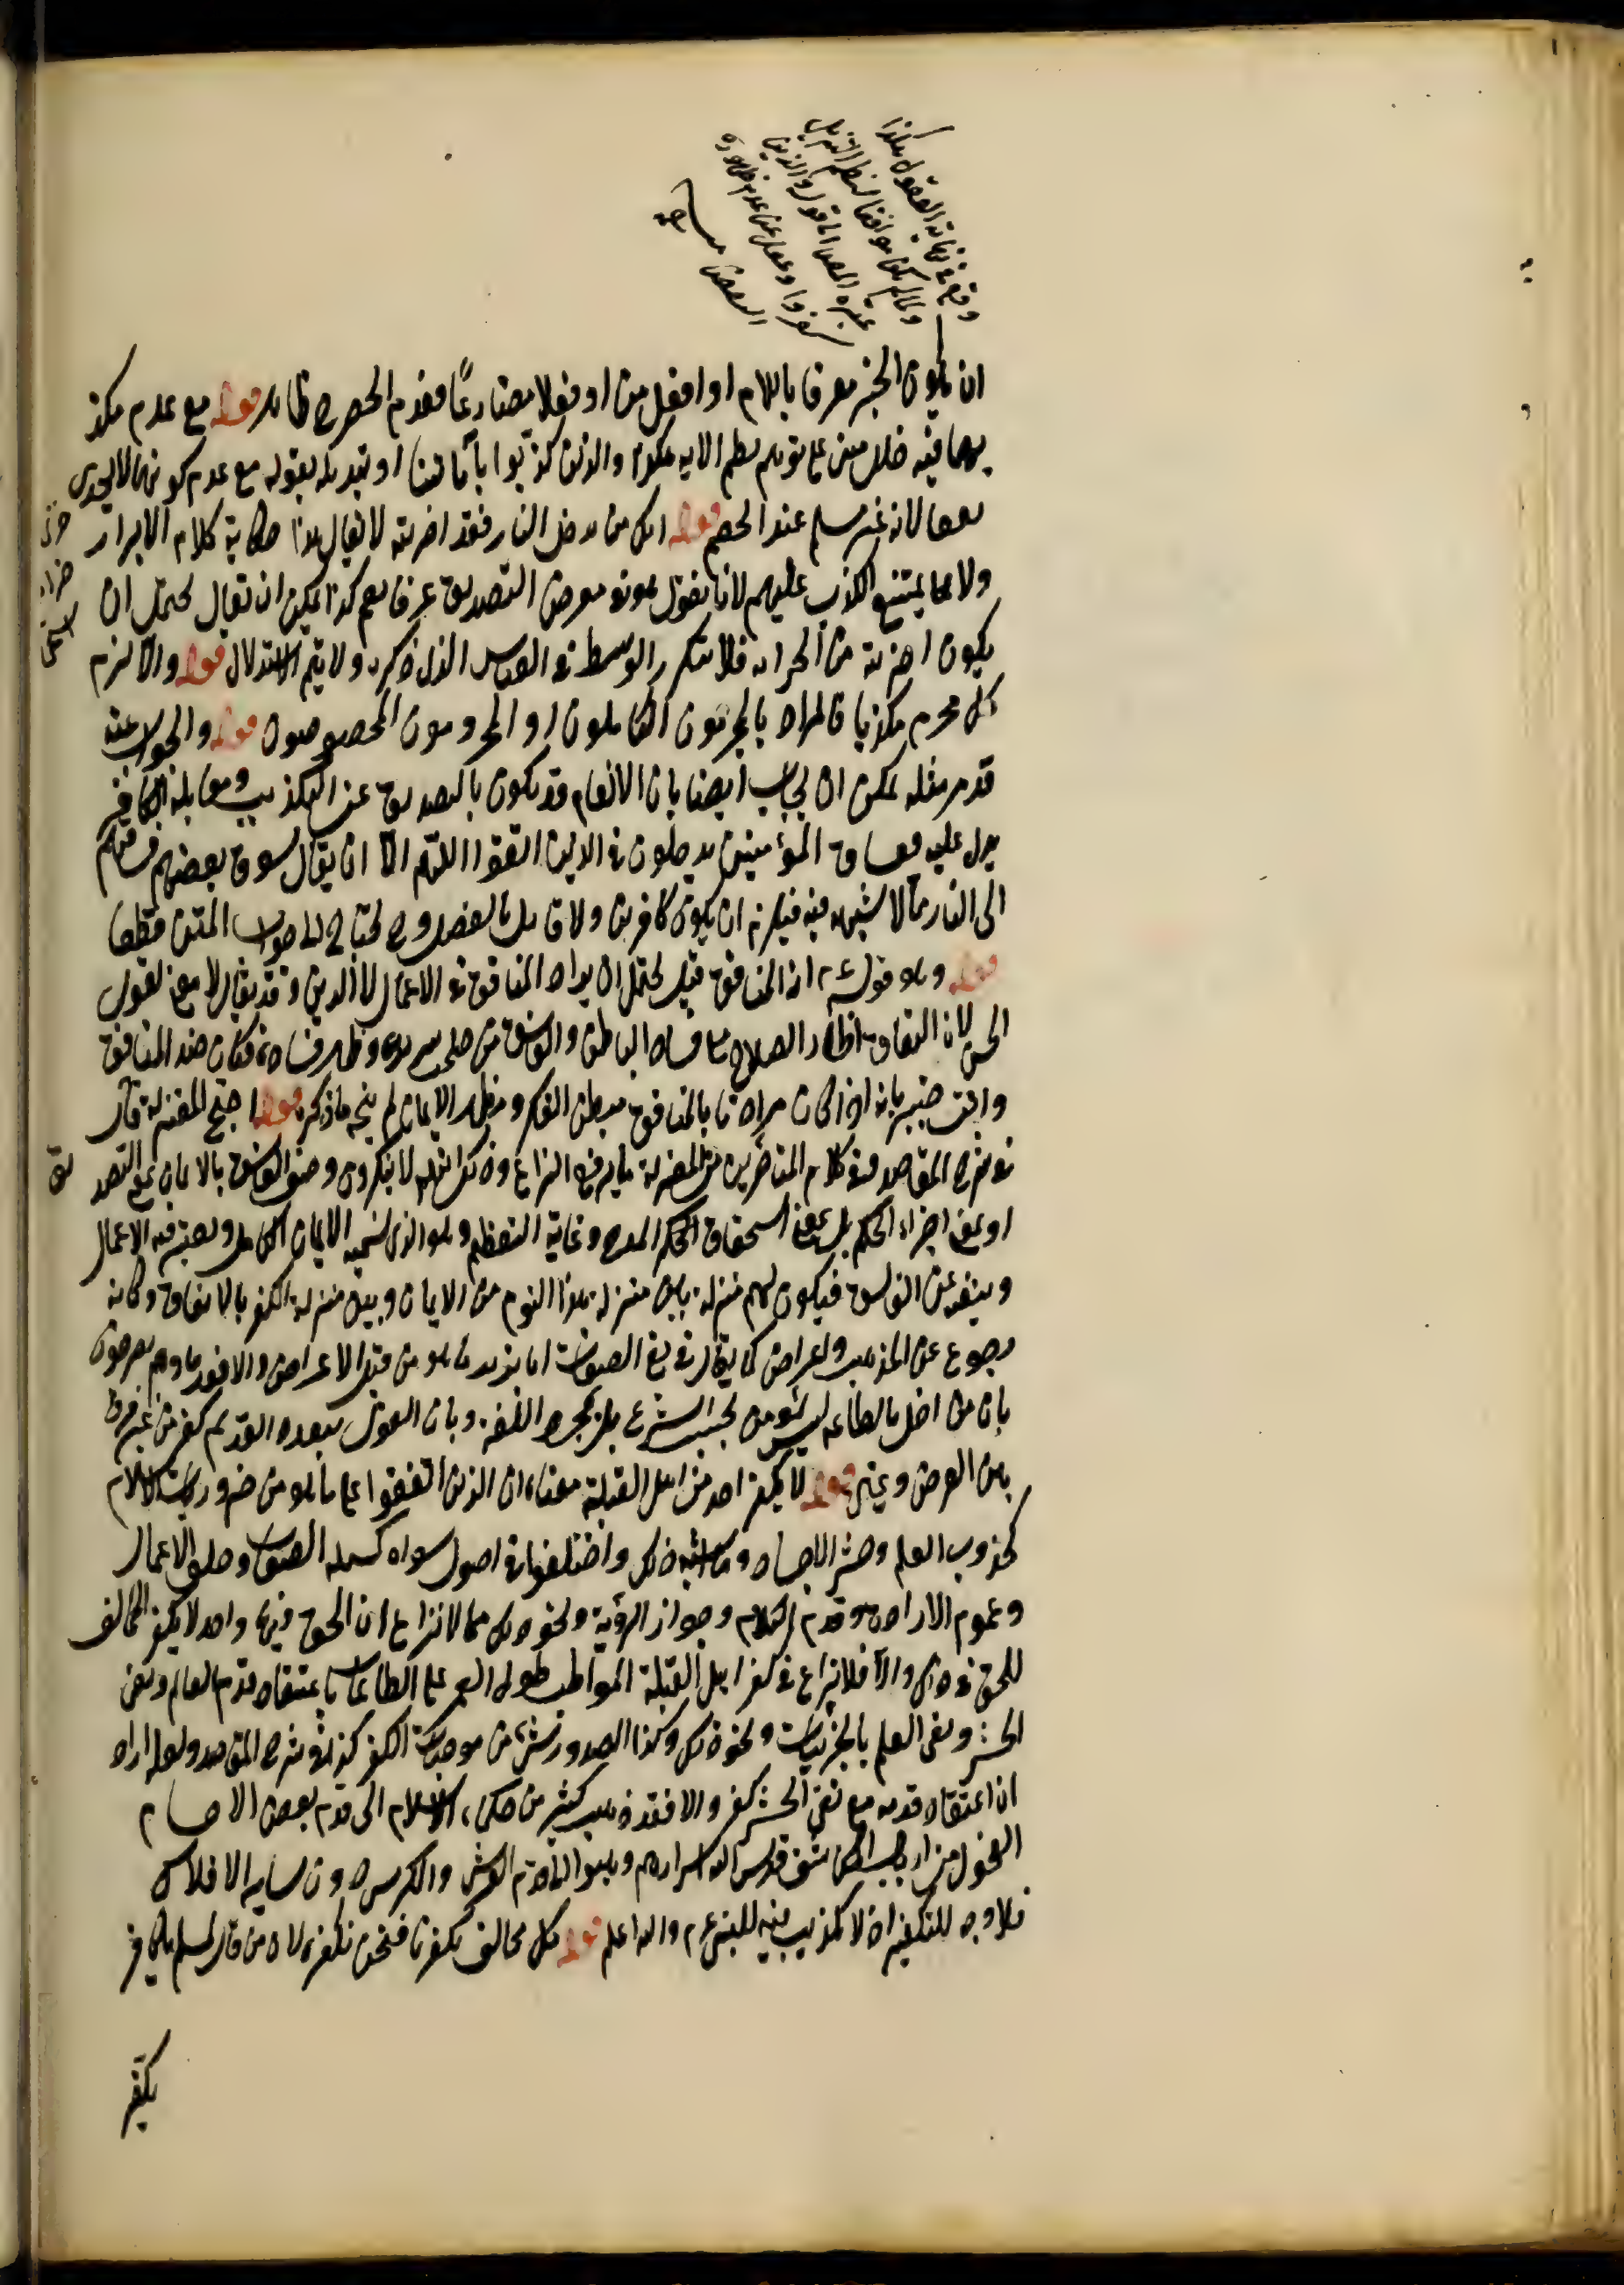 وقع في نهاية العقول هكذا
ولما لم يكن موافقا لنظم التنزيل
غيره المص الى قوله والذين
كفروا وغفل عن عدم ظهوره
البعض منه
ان يكون الخبر معرفا باللام او افعل من او فعلا مضارعا فعدم الحصر ح ظاهر قوله مع عدم
فيه خلل مبنى على توهم نظم الاية هكذا والذين كذبوا بآياتنا او تبديله بقوله مع عدم كونهما لا يجدى
نفعا لانه غير مسلم عند الخصم قوله انك من تدخل النار فقد اخزيته لا يقال هذا حكاية كلام الابرار
ولا مما يمتنع الكذب عليهم لانا نقول هو فى معرض التصديق عرفا نعم يمكن ان يقال يحتمل ان
يكون اخزيته من فلا يتكرر الوسط فى القياس الذى ذكره ولا يتم الاستدلال قوله والا لزم
كل مجرم مكذبا فالمراد بالمجرمون الكاملون او المجرمون المخصوصون قوله والجواب عنه
قد مر مثله يمكن ان يجاب ايضا بان الانعام قد يكون بالتصديق عن التكذيب ومقابلة الكافر
يدل عليه فساق المؤمنين يدخلون فى الذين اتقوا اللهم الا ان يقال سوق بعضهم فساقهم
الى النار مما لا شبهة فيه فيلزم ان يكون كافرين ولا قائل بالفصل وح يحتاج الى جواب المتن قطعا
قوله وهو قوله ان المنافق قيل يحتمل ان يراد المنافق فى الاعمال لا الدين وقد يقال لا معنى لقول
الحسن لان النفاق اظهار الصلاح مع فساد الباطن والفاسق من صلح سريرته وظهر فساده فكان ضد المنافق
وانت خبير بانه اذا كان مراده بالمنافق مبطن الكفر ومظهر الايمان لم يتجه ما ذكره قوله احتج المعتزلة قال
فى شرح المقاصد وفى كلام المتأخرين من المعتزلة ما يرفع النزاع وذلك انهم لا ينكرون وصف الفاسق بالايمان بمعنى التصديق
او بمعنى اجراء الحكم بل بمعنى استحقاق المدح وغاية التعظيم وهو الذى نسميه الايمان الكامل ونعتبر فيه الاعمال
وننفيه عن الفاسق فيكون لهم منزلة بين منزلة هذا النوع من الايمان وبين منزلة الكفر بالاتفاق وكأنه
رجوع عن المذهب واعراض كما يقال فى نفى الصفات انا نريد ما هو من قبيل الاعراض والا وهم يصرحون
بان من اخل بالطاعة ليس بمؤمن بحسب الشرع بل بمجرد اللغة وبان القول بتعدد القديم كفر من غير فرق
بين العرض وغيره قوله لا يكفر احد من اهل القبلة معناه ان الذين اتفقوا على ما هو من ضروريات الاسلام
كحدوث العالم وحشر الاجساد وما يشبه ذلك واختلفوا فى اصول سواه كمسئلة الصفات وخلق الاعمال
وعموم الارادة وقدم الكلام وجواز الرؤية ونحو ذلك مما لا نزاع ان الحق فيها واحد لا يكفر المخالف
للحق فى ذلك والا فلا نزاع فى كفر اهل القبلة المواظب طول العمر على الطاعات باعتقاد قدم العالم ونفى
الحشر ونفى العلم بالجزئيات ونحو ذلك وكذا الصدور شئ من موجبات الكفر كذا فى شرح المقاصد ولعله اراد
ان اعتقاد قدمه مع نفى الحشر كفر والا فقد ذهب كثير من حكماء الاسلام الى قدم بعض الاجسام
الفحول من ارباب المكاشفة قدس الله اسرارهم ذهبوا الى قدم العرش والكرسى دون سائر الافلاك
فلا وجه للتكفير اذ لا تكذيب فيه للنبى عم والله اعلم قوله كل مخالف يكفرنا فنحن نكفره لان من قال لمسلم يا كافر
يكفر